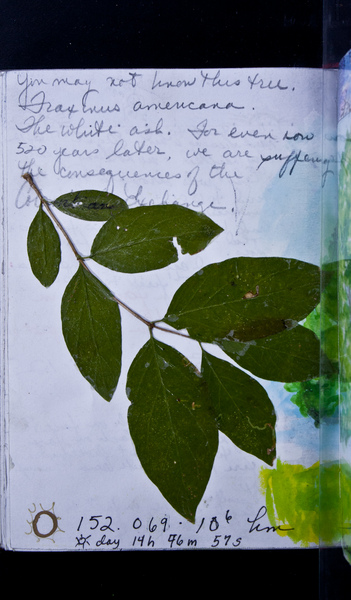 You may not know this tree.
Fraxinus americana.
The white ash. For even now
520 years later, we are suffering
the consequences of the
Columbian Exchange.
152.069.10⁶ km
☼ day 14h 46m 57s